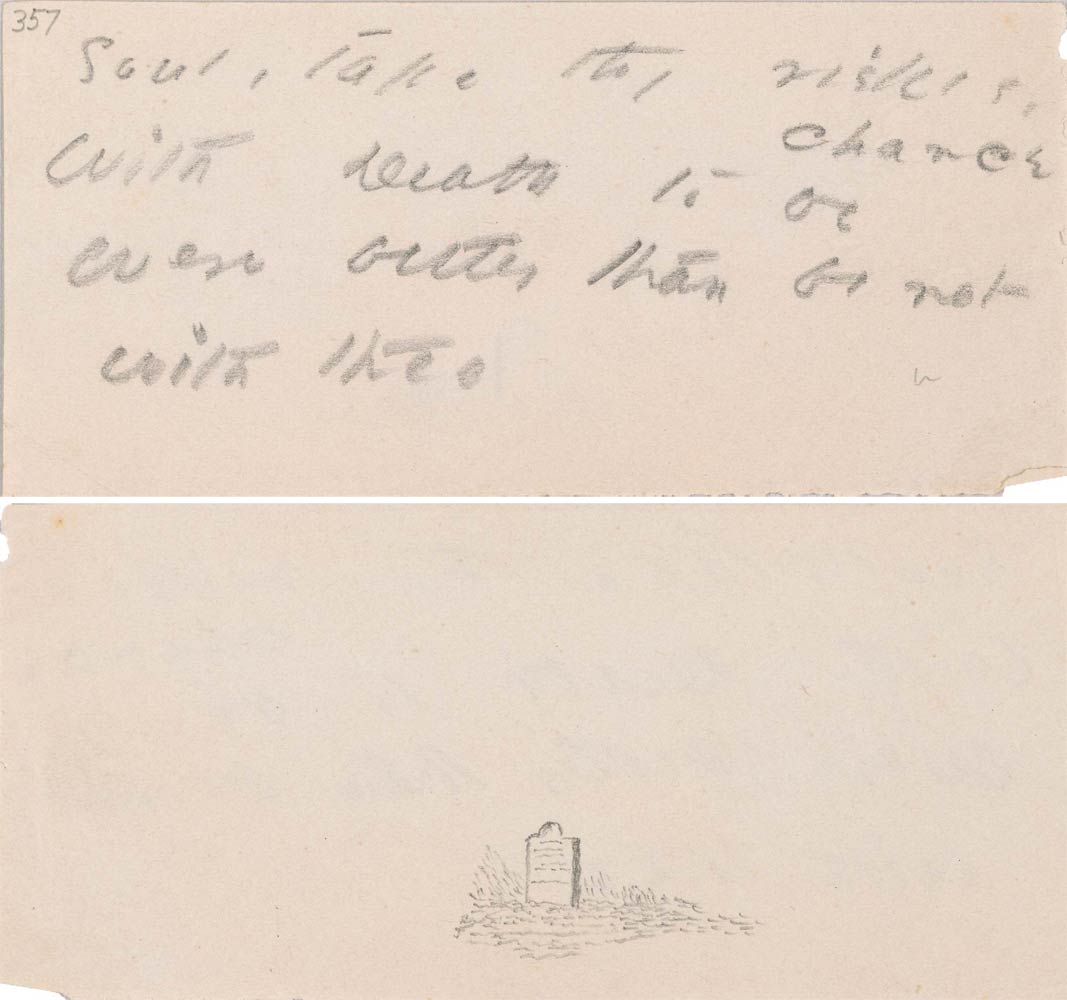 357
Soul, take thy risks,
chance
With Death to be
were better than be not
with thee